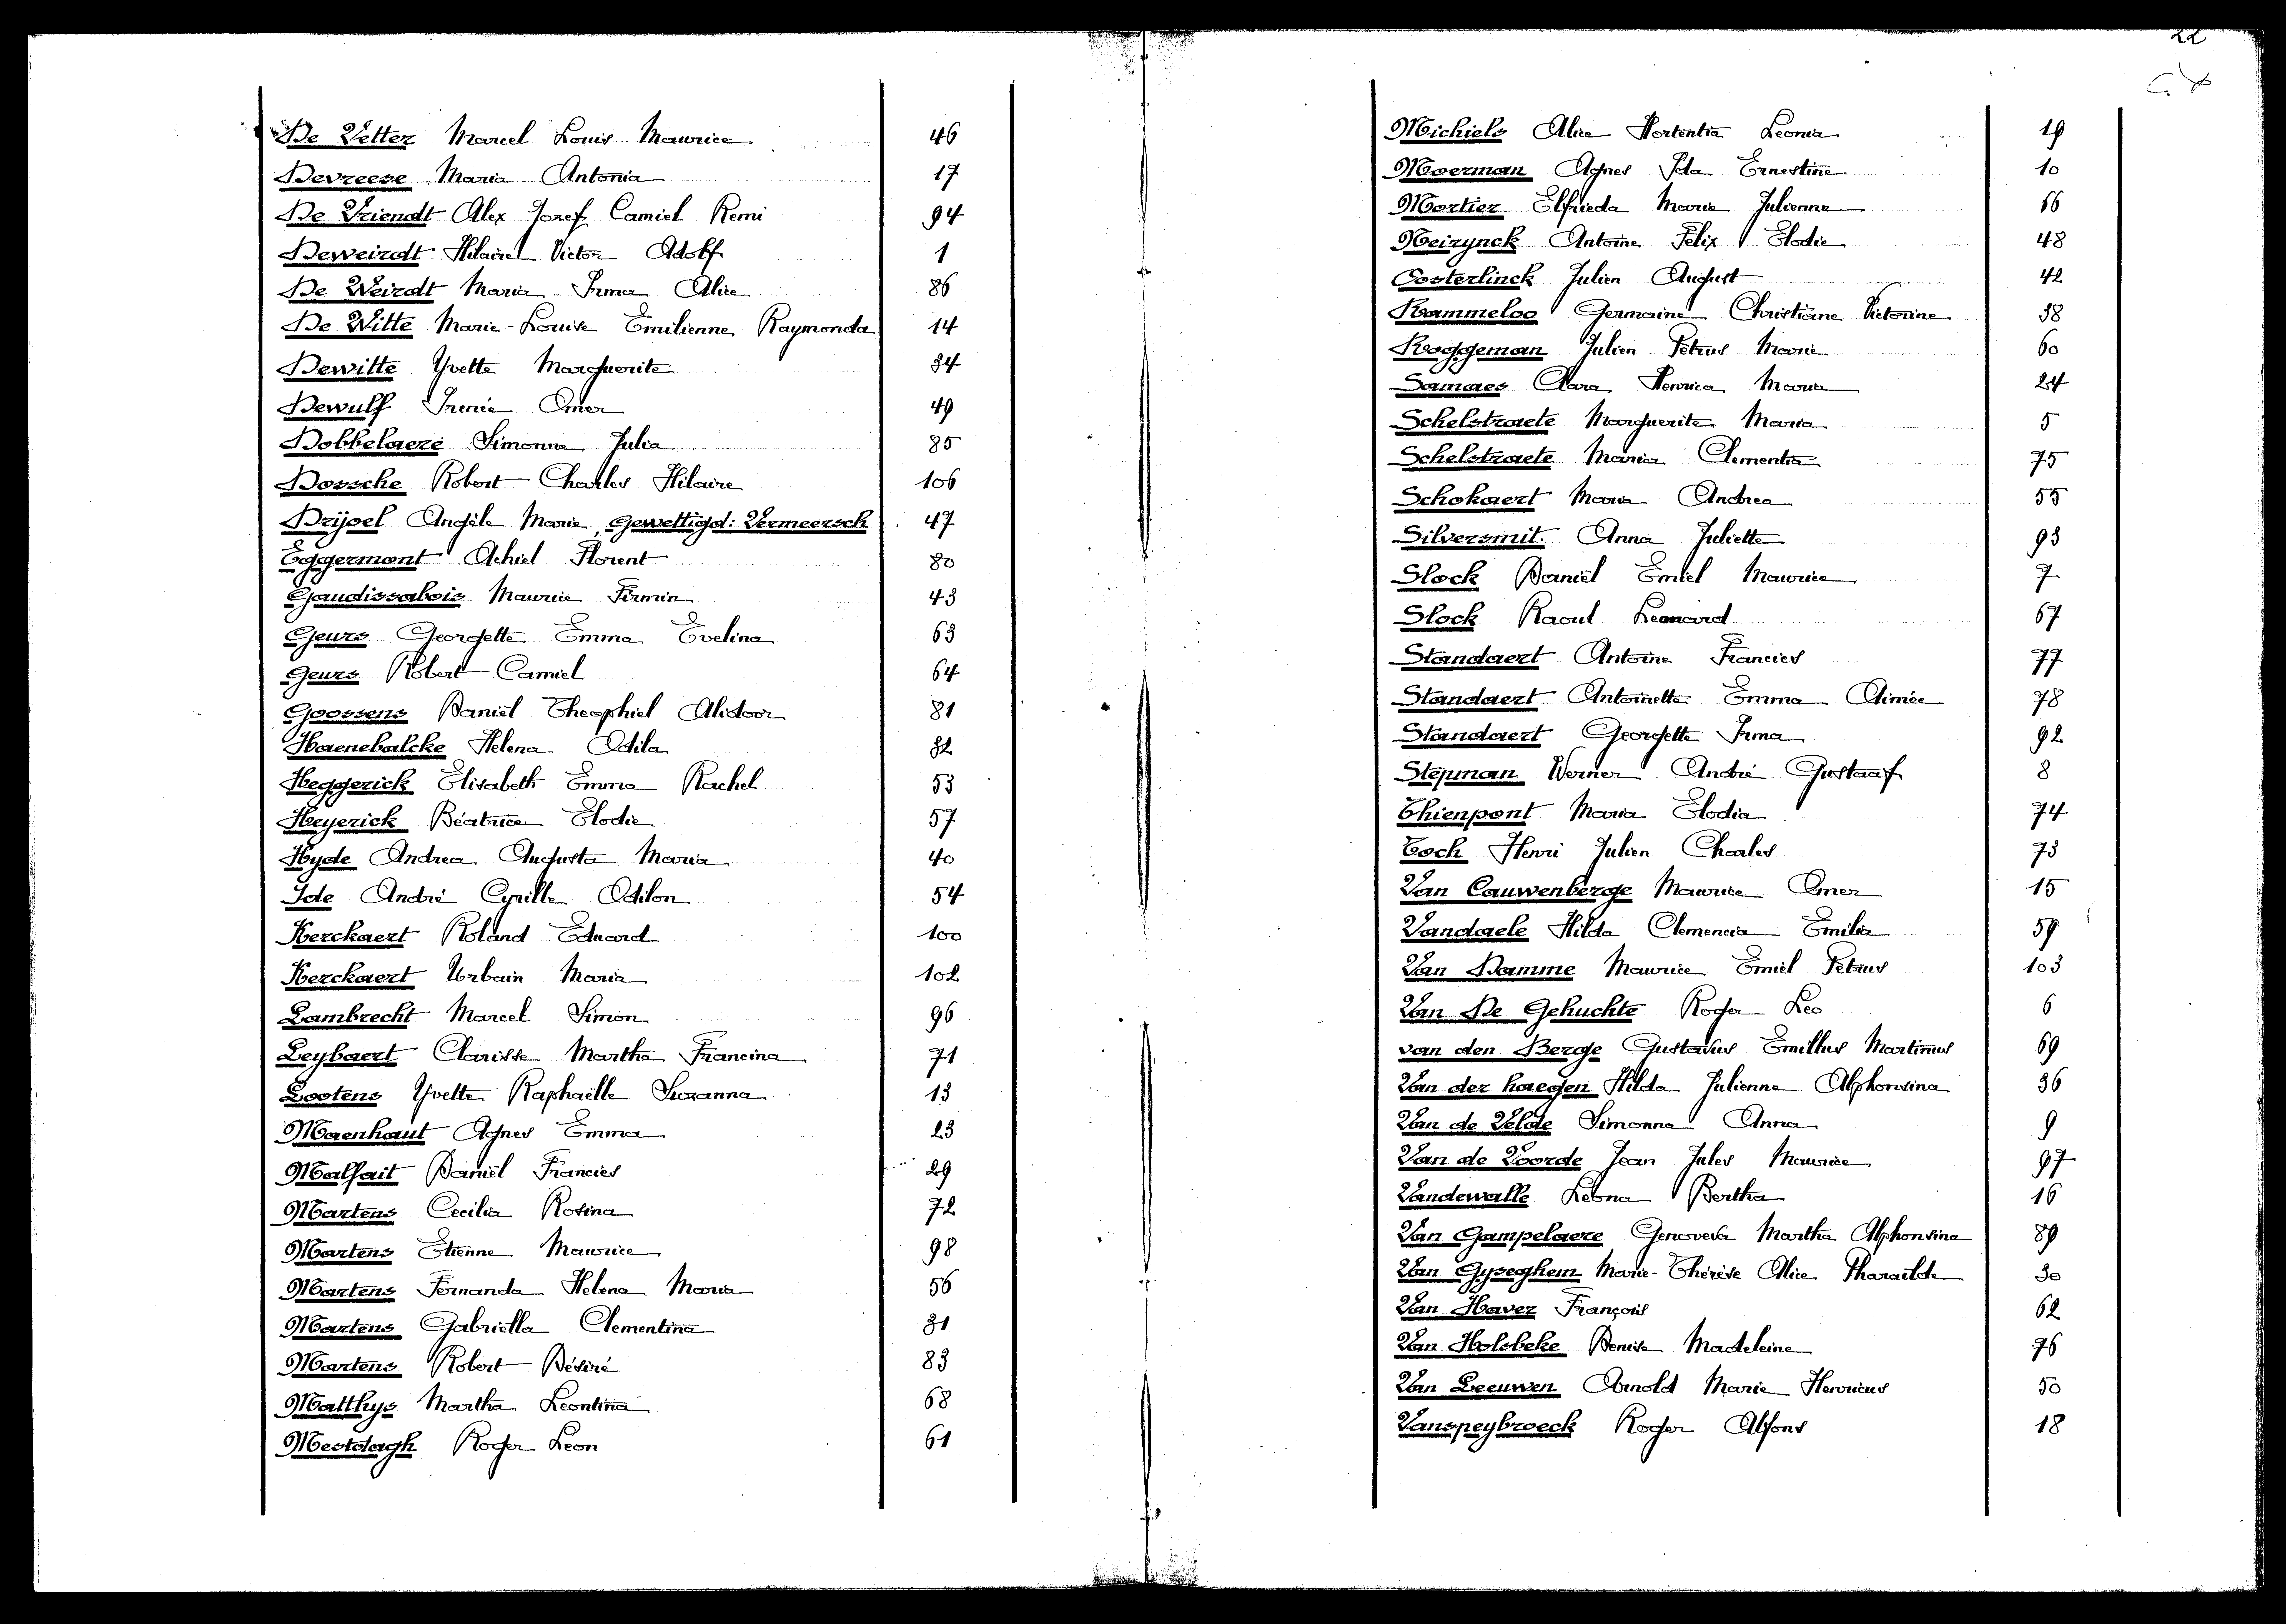 De Vetter Marcel Louis Maurice 46
Devreese Maria Antonia 17
De Vriendt Alex Jozef Camiel Remi 94
Deweirdt Hilaire Victor Adolf 1
De Weirdt Maria Irma Alice 86
De Witte Marie-Louise Emilienne Raymonda 14
Dewitte Yvette Marguerite 34
Dewulf Irenée Omer 49
Dobbelaere Simonna Julia 85
Dossche Robert Charles Hilaire 106
Drijoel Angèle Marie, gewettigd: Vermeersch 47
Eggermont Achiel Florent 80
Gaudissabois Maurice Firmin 43
Geurs Georgette Emma Evelina 63
Geurs Robert Camiel 64
Goossens Daniël Theophiel Alidoor 81
Haenebalcke Helena Odila 32
Heggerick Elisabeth Emma Rachel 53
Heyerick Béatrice Elodie 57
Hyde Andrea Augusta Maria 40
Ide André Cyrille Odilon 54
Kerckaert Roland Eduard 100
Kerckaert Urbain Maria 102
Lambrecht Marcel Simon 96
Leybaert Clarisse Martha Francina 71
Lootens Yvette Raphaëlle Suzanna 13
Maenhaut Agnes Emma 23
Malfait Daniël Francies 29
Martens Cecilia Rosina 72
Martens Etienne Maurice 98
Martens Fernanda Helena Maria 56
Martens Gabriella Clementina 31
Martens Robert Désiré 83
Matthys Martha Leontina 68
Mestdagh Roger Leon 61
22
Michiels Alice Hortentia Leonia 19
Moerman Agnes Ida Ernestine 10
Mortier Elfrieda Maria Julienne 66
Neirynck Antoine Felix Elodie 48
Oosterlinck Julien August 42
Rammeloo Germaine Christiane Victorine 38
Roggeman Julien Petrus Marie 60
Samaes Clara Henrica Maria 24
Schelstraete Marguerite Maria 5
Schelstraete Maria Clementia 75
Schokaert Maria Andrea 55
Silversmit Anna Juliette 93
Slock Daniël Emiel Maurice 7
Slock Raoul Leonard 67
Standaert Antoine Francies 77
Standaert Antoinette Emma Aimée 78
Standaert Georgette Irma 92
Stepman Werner André Gustaaf 8
Thienpont Maria Elodia 74
Toch Henri Julien Charles 73
Van Cauwenberge Maurice Omer 15
Vandaele Hilda Clemencia Emilia 59
Van Damme Maurice Emiel Petrus 103
Van De Gehuchte Roger Leo 6
van den Berge Gustavus Emillus Martinus 69
Van der haegen Hilda Julienne Alphonsina 36
Van de Velde Simonna Anna 9
Van de Voorde Jean Jules Maurice 97
Vandewalle Leona Bertha 16
Van Gampelaere Genoveva Martha Alphonsina 89
Van Gyseghem Marie-Thérèse Alice Pharaïlde 30
Van Haver François 62
Van Holsbeke Denise Madeleine 76
Van Leeuwen Arnold Marie Henricus 50
Vanspeybroeck Roger Alfons 18